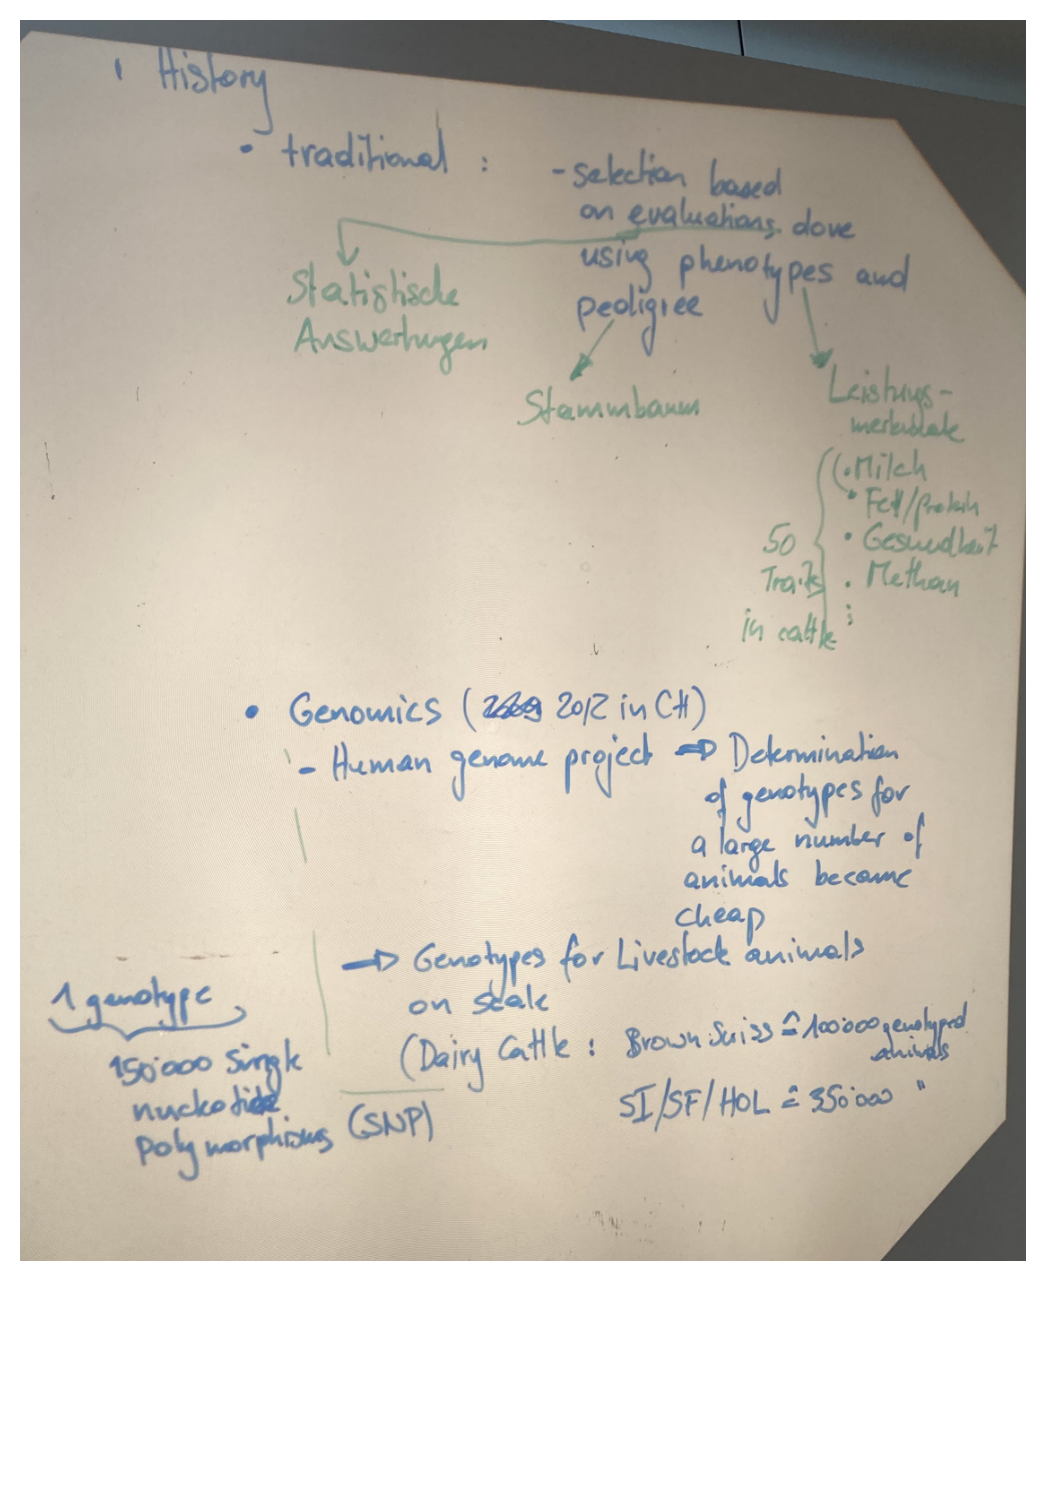 History
• traditional : - selection based
on evaluations done
using phenotypes and
pedigree
Statistische
Auswertungen
Stammbaum
Leistungs-
merkmale
• Milch
• Fett/Protein
• Gesundheit
• Methan
50
Traits
in cattle
• Genomics (2012 in CH)
- Human genome project ⇒ Determination
of genotypes for
a large number of
animals became
cheap
⇒ Genotypes for Livestock animals
on scale
(Dairy Cattle : Brown Swiss ≙ 100'000 genotyped
animals
SI/SF/HOL ≙ 350'000 "
1 genotype
150'000 Single
nucleotide
Polymorphisms (SNP)